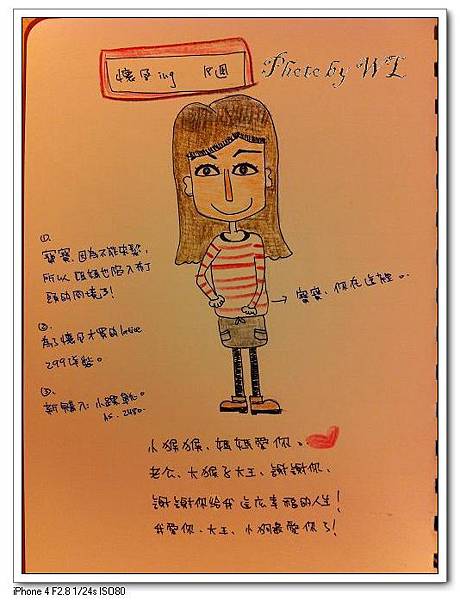 懷孕ing 8週
Photo by WL
①.
寶寶.因為不能染髮,
所以媽媽也陷入布丁
頭的困境了!
②.
為了懷孕才買的lative
299洋裝。
③.
新購入小踝靴。
NT. 2480.
→ 寶寶、你在這裡。
小猴猴、媽媽愛你、
老公、大猴子大王、謝謝你、
謝謝你給我這麼幸福的人生!
我愛你、大王、小狗最愛你了!
iPhone 4 F2.8 1/24s ISO80